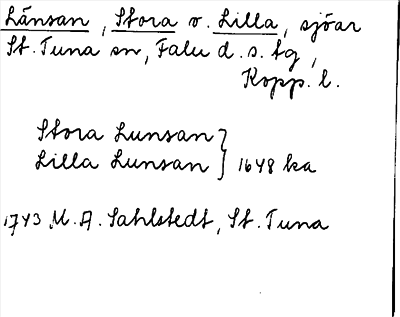 Länsan, Stora o. Lilla, sjöar
St. Tuna sn, Falu d.s. tg,
Kopp. l.
Stora Lunsan }
Lilla Lunsan } 1648 ka
1743 M. A. Sahlstedt, St. Tuna